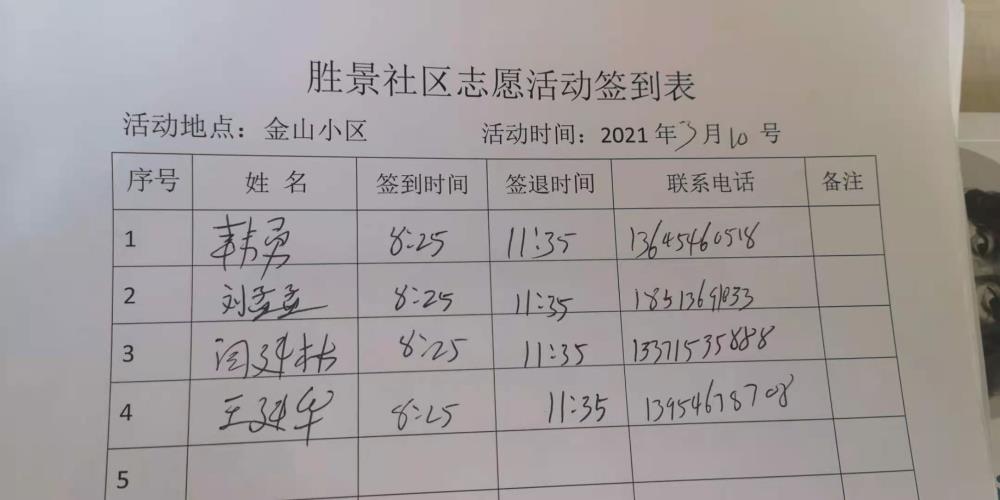 胜景社区志愿活动签到表
活动地点：金山小区 活动时间：2021年3月10号
序号 姓名 签到时间 签退时间 联系电话 备注
1 韩勇 8:25 11:35 13645460518
2 刘孟孟 8:25 11:35
3 闫建林 8:25 11:35 13371535888
4 王建华 8:25 11:35 13954678708
5